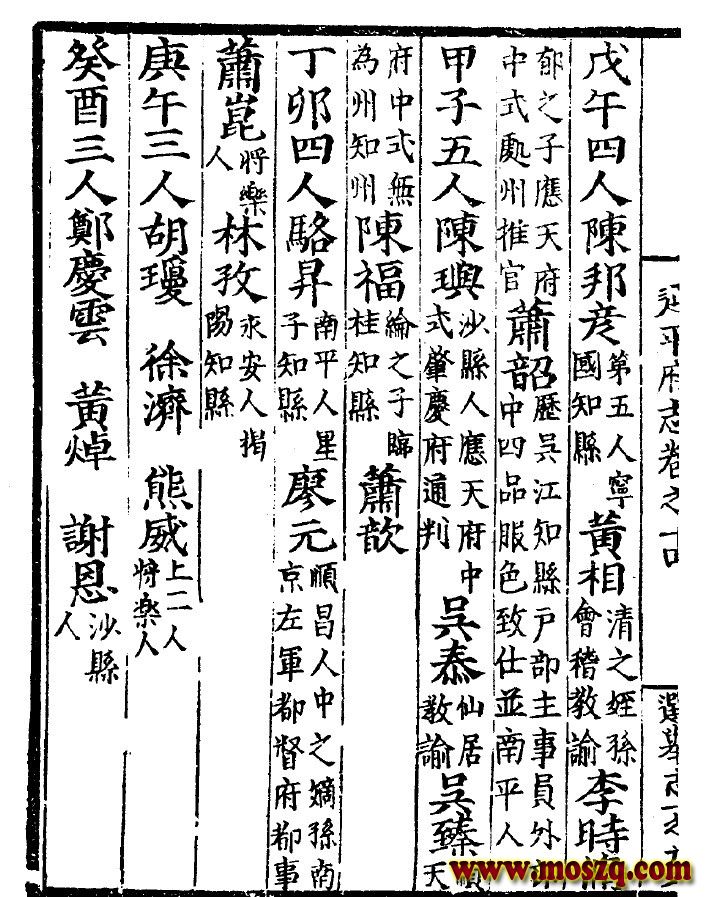 平府志卷之十四
選舉志
戊午四人陳邦彦第五人寧國知縣黃相清之姪孫會稽教諭李時
郁之子應天府中式處州推官蕭韶歷吳江知縣戶部主事員外中四品服色致仕並南平人
甲子五人陳璵沙縣人應天府中式肇慶府通判吳泰仙居教諭吳臻順天
府中式無為州知州陳福綸之子臨桂知縣蕭歆
丁卯四人駱昇南平人星子知縣廖元順昌人中之嫡孫南京左軍都督府都事
蕭崑將樂人林孜永安人揭陽知縣
庚午三人胡瓊 徐濟 熊威上二人将楽人
癸酉三人鄭慶雲 黃焯 謝恩沙縣人
www.moszq.com